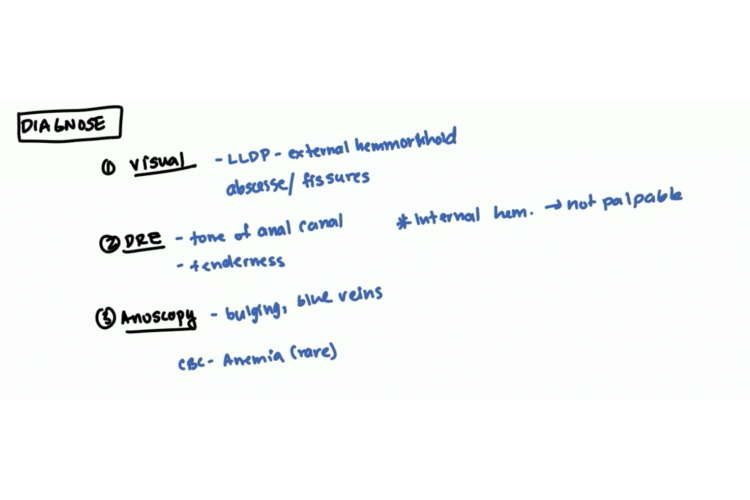 DIAGNOSE
① Visual - LLDP - external hemmorkhold
abscesse/ fissures
② DRE - tone of anal canal * Internal hem. → not palpable
- tenderness
③ Anoscopy - bulging, blue veins
CBC - Anemia (rare)